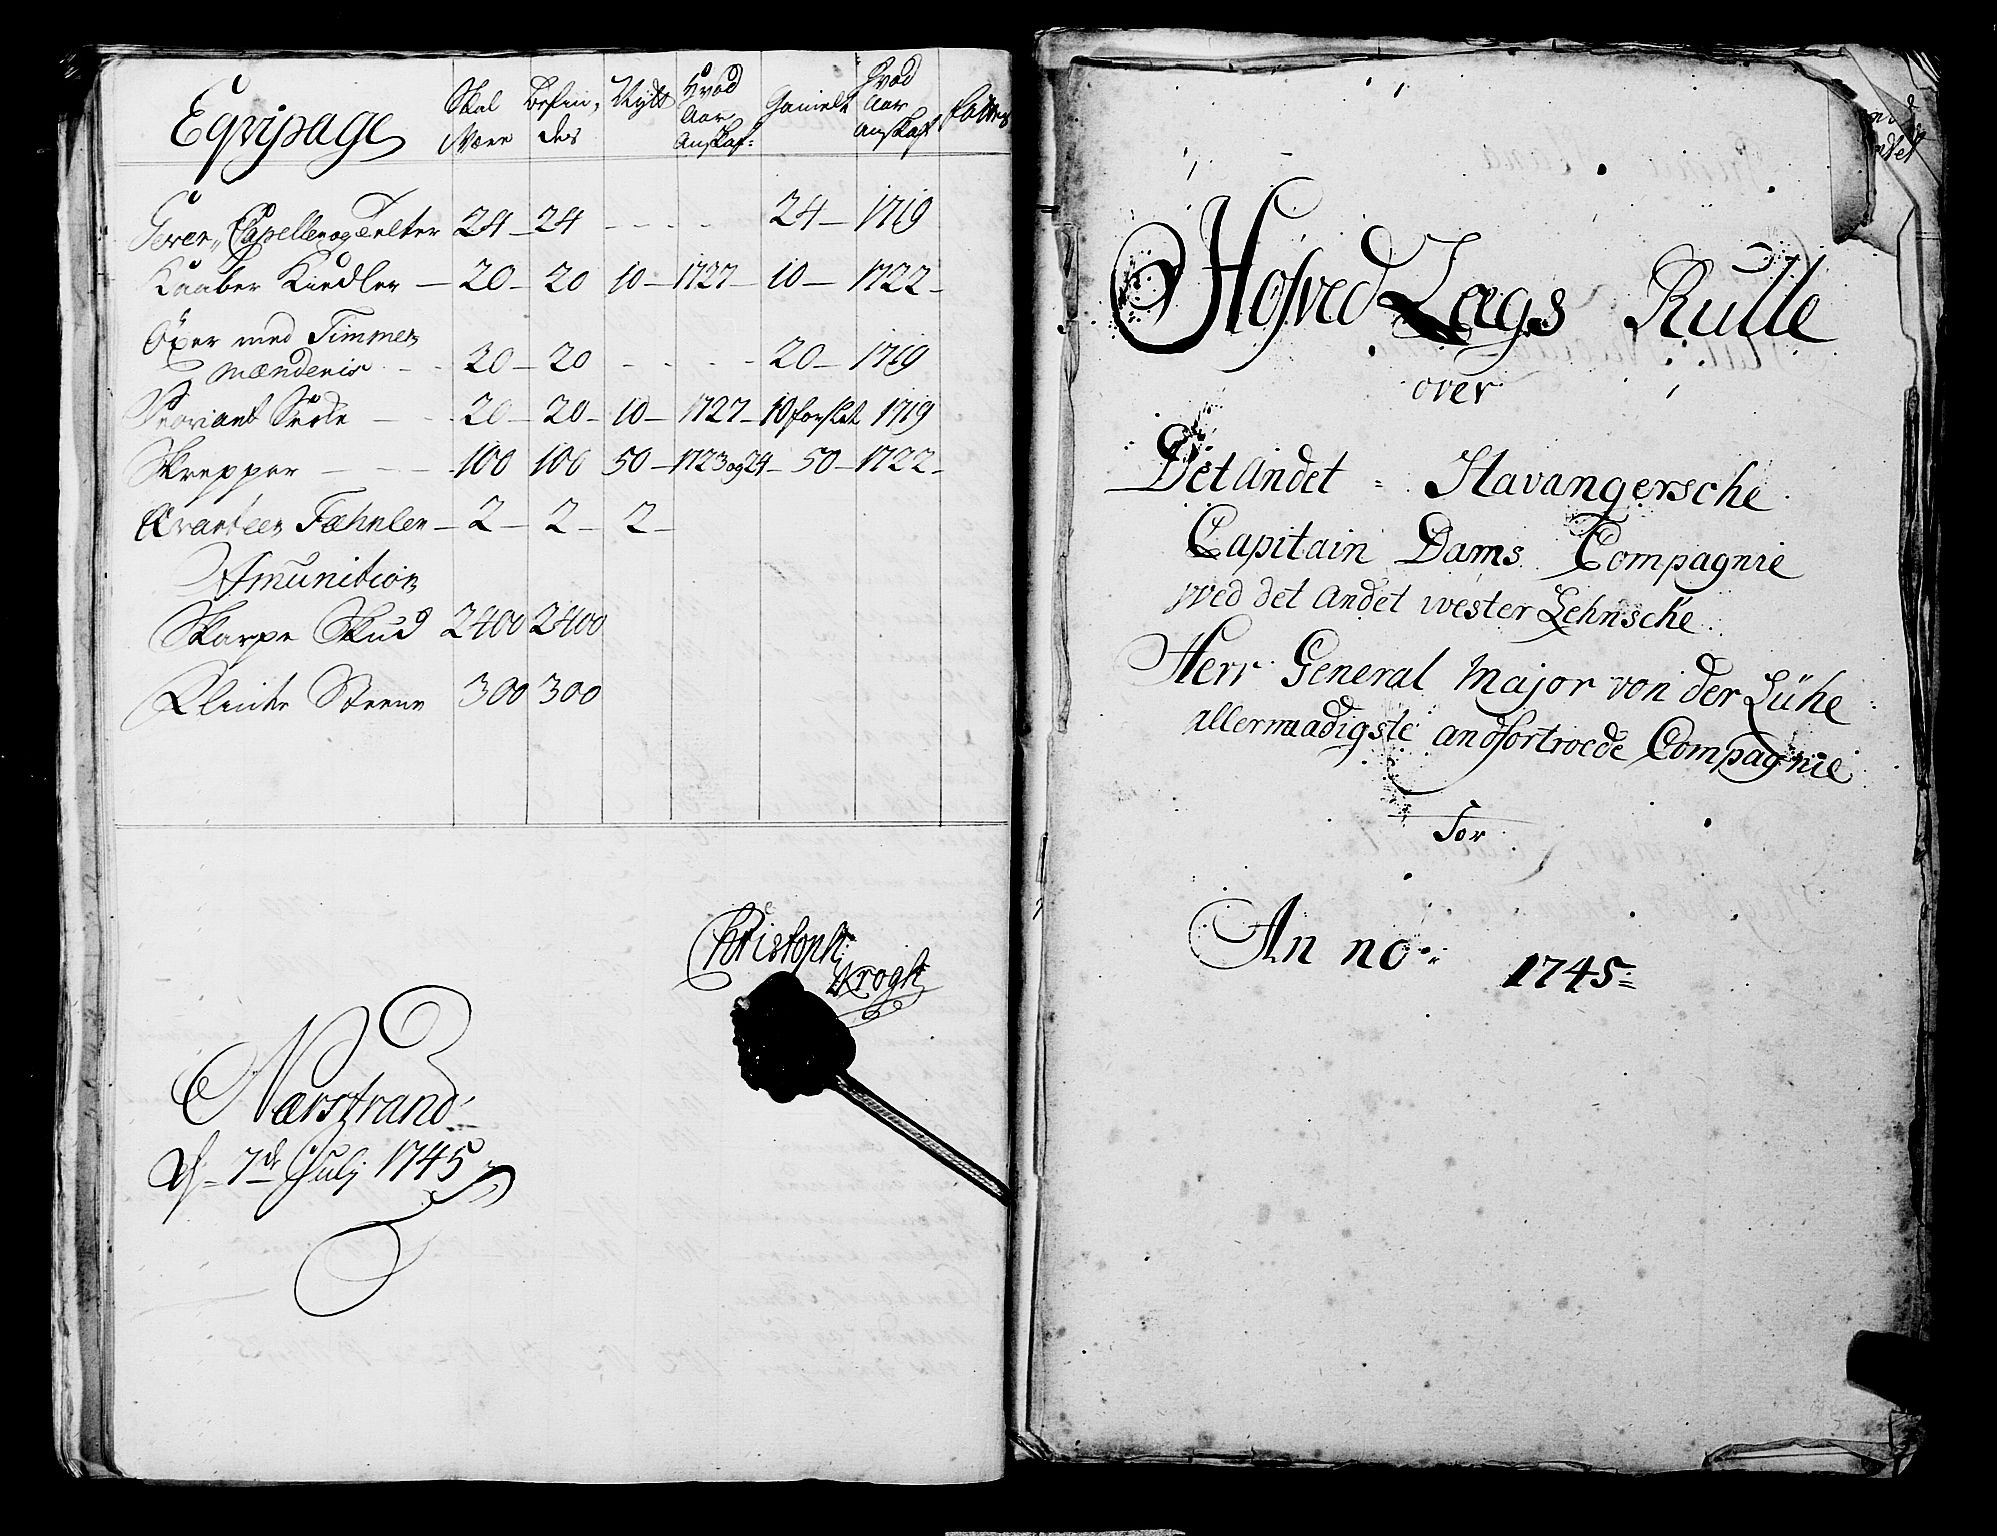 Eqvipage Skal Være Befin, des Nytt Hvad Aar Anskaf: Gamelt Hvad Aar Anskaf
Gever,, Capeller og Telter 24 – 24 - - - - 24 – 1719
Kaaber Kiedler – 20 – 20 10 – 1727 – 10 – 1722 –
Öxer med Timmer
mændenis - - 20 – 20 - - - - 20 – 1719
Proviant Secke - - 20 – 20 – 10 – 1727 – 10 forslet 1719
Skrepper - - - 100 100 50 – 1723 og 24 – 50 – 1722 –
Qvarteer Fæhnler – 2 – 2 – 2 –
Amunition
Skarpe Skud 2400 2400
Flinte Steene 300 300
Christoph:
Krogh
Nærstrand
d: 7de Julj 1745
Hofved Lægs Rulle
over
Det Andet = Stavangersche
Capitain Dams Compagnie
ved det andet vester Lehnsche
Herr General Major von der Lühe
allernaadigste anofortroede Compagnie
For
An no: 1745